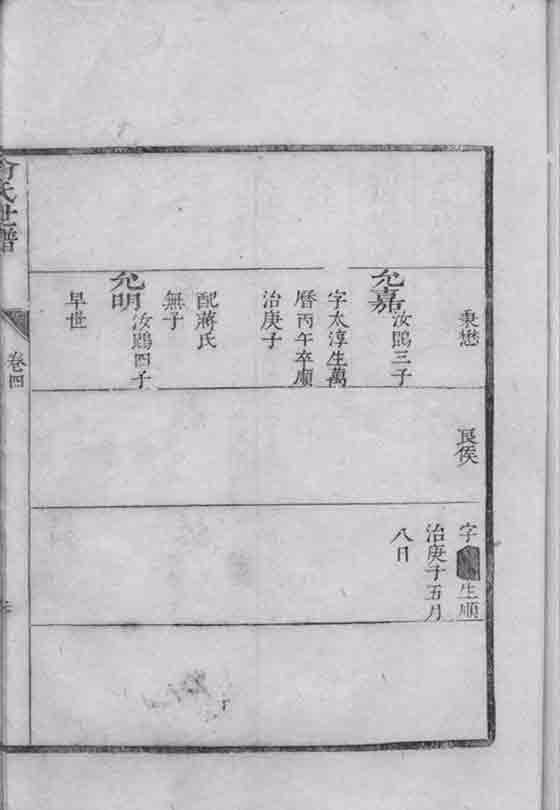 秉懋
允嘉
汝鷗三子
字太淳生萬
曆丙午卒順
治庚子
配蔣氏
無子
允明
汝鷗四子
早世
良侯
字
生順
治庚子五月
八日
氏世譜
卷四